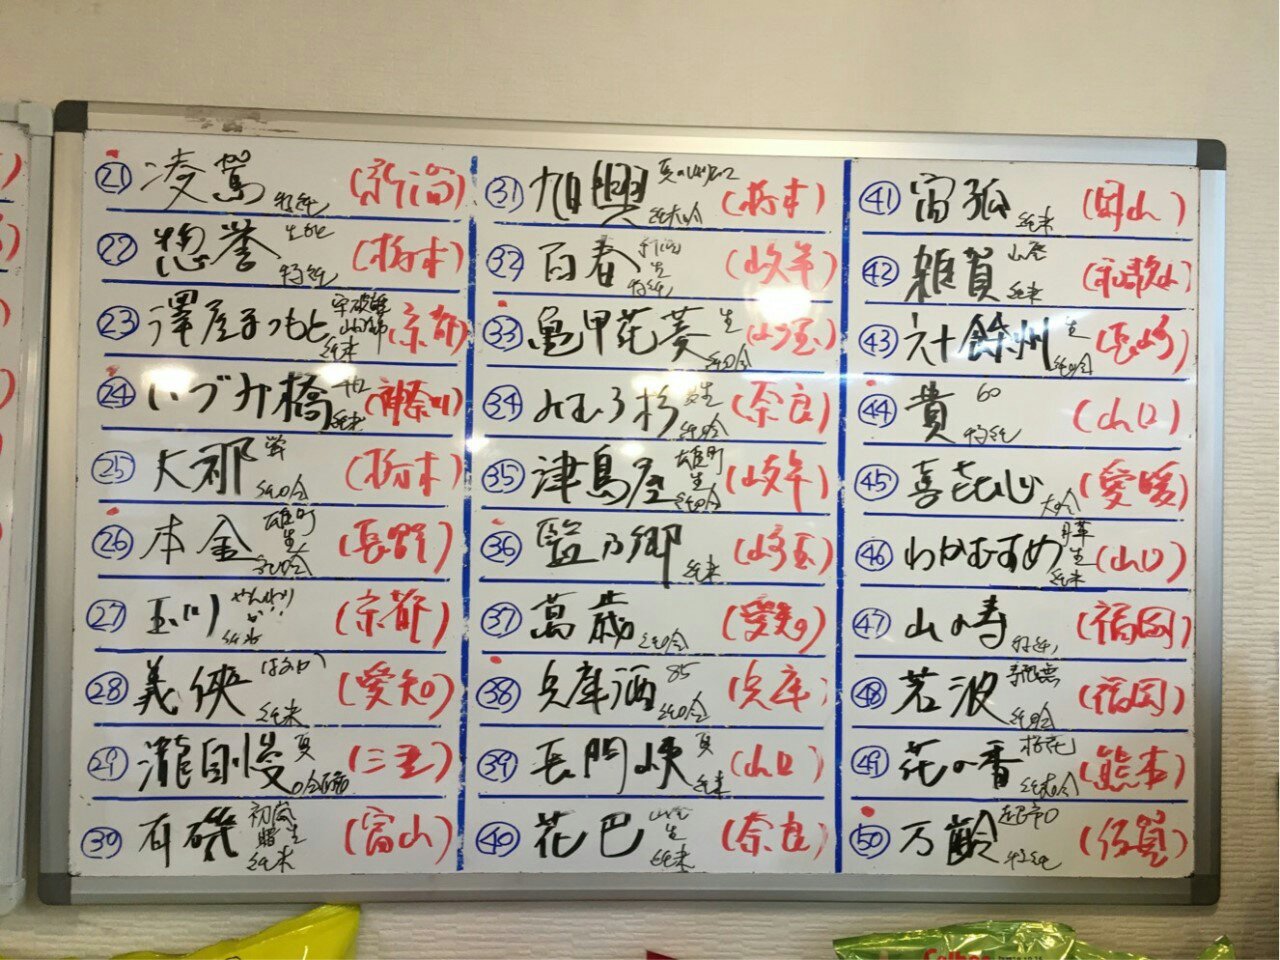 ㉑ 凌駕 特純 (新潟)
㉒ 惣誉 生酛 特純 (栃木)
㉓ 澤屋まつもと 純米 (京都)
㉔ いづみ橋 純米 (神奈川)
㉕ 大那 純吟 (栃木)
㉖ 本金 雄町 生 純吟 (長野)
㉗ 玉川 純米 (京都)
㉘ 義侠 はるか 純米 (愛知)
㉙ 瀧自慢 夏 (三重)
㉚ 有磯 曙 初嵐 生 純米 (富山)
㉛ 旭興 純大吟 (栃木)
㉜ 百春 生 特純 (岐阜)
㉝ 亀甲花菱 生 純吟 (埼玉)
㉞ みむろ杉 生 純吟 (奈良)
㉟ 津島屋 雄町 生 純吟 (岐阜)
㊱ 藍の郷 純米 (埼玉)
㊲ 萬歳 純吟 (愛知)
㊳ 兵庫酒 85 純吟 (兵庫)
㊴ 長門峡 夏 純米 (山口)
㊵ 花巴 山廃 生 純米 (奈良)
㊶ 宙狐 純米 (岡山)
㊷ 雑賀 山廃 純米 (和歌山)
㊸ 六十餘州 生 純吟 (長崎)
㊹ 貴 60 特純 (山口)
㊺ 喜多心 大吟 (愛媛)
㊻ わかむすめ 月草 生 純米 (山口)
㊼ 山の寿 特純 (福岡)
㊽ 若波 純吟 (福岡)
㊾ 花の香 桜花 純大吟 (熊本)
㊿ 万齢 超辛口 特純 (佐賀)
Calbee